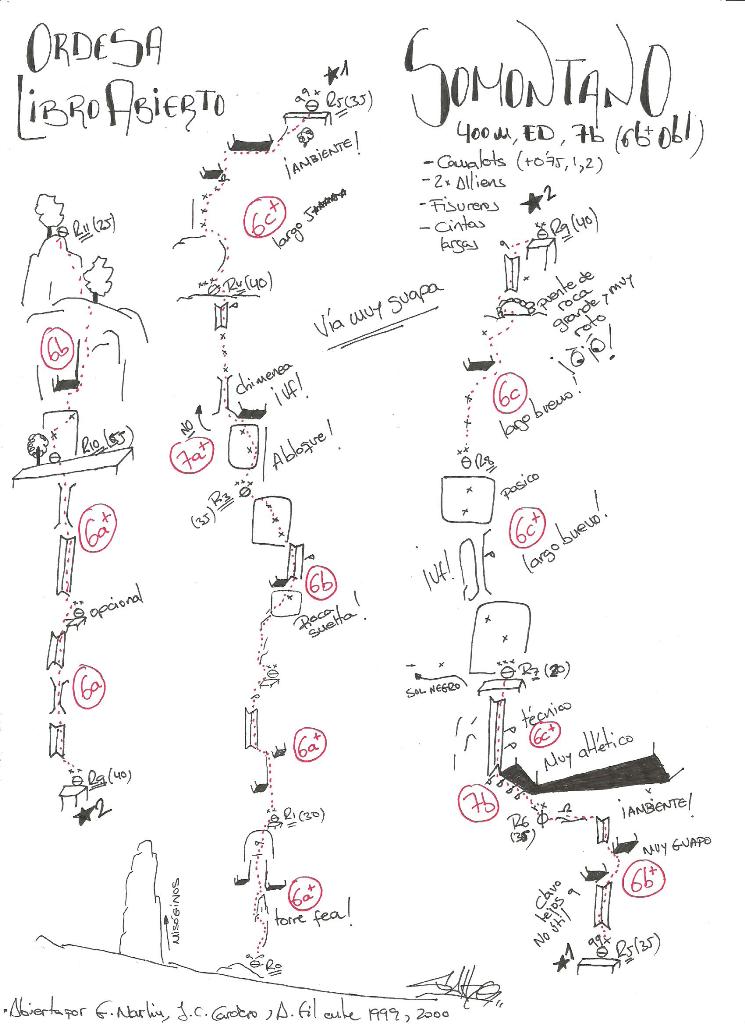 ORDESA
LIBRO ABIERTO
SOMONTANO
400m, ED, 7b (6b+ Obl)
- Camalots (+0'75, 1, 2)
- 2x Alliens
- Fisureros
- Cintas
largas
★1
R5 (35)
¡AMBIENTE!
6c+
largo
R4 (40)
Vía muy guapa
chimenea
¡Uf!
NO
7a+
A bloque!
R3
(35)
6b
Roca
suelta!
6a+
R1 (30)
6a+
torre fea!
R0
R11 (25)
6b
R10 (55)
6a+
opcional
6a
R9 (40)
★2
MISÓGINOS
★2
R9 (40)
puente de
roca
grande y muy
roto
6c
largo bueno!
R8
pasico
6c+
largo bueno!
¡Uf!
R7 (20)
SOL NEGRO
técnico
6c+
Muy atlético
7b
R6
(35)
¡AMBIENTE!
MUY GUAPO
6b+
Clavo
lejos y
No útil
R5 (35)
★1
• Abierta por F. Marlin, J.C. Cardero, A. Gil entre 1999, 2000